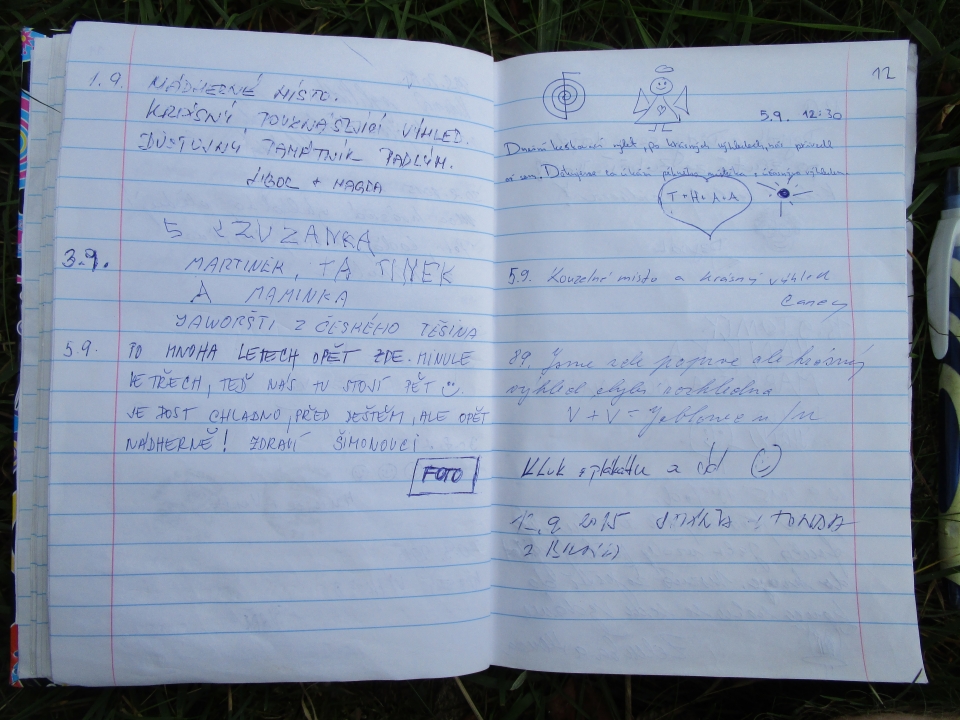 1.9. NÁDHERNÉ MÍSTO.
KRÁSNÝ, VÝHLED.
DŮSTOJNÝ PAMÁTNÍK PADLÝM.
LIBOR + MAGDA
5 ZUZANKA
3.9. MARTINEK, TATINEK
A MAMINKA
JAWORŠTI Z ČESKÉHO TĚŠINA
5.9. PO MNOHA LETECH OPĚT ZDE. MINULE
VE TŘECH, TEĎ NÁS TU STOJÍ PĚT
JE DOST CHLADNO, PŘED DEŠTĚM, ALE OPĚT
NÁDHERNĚ! ZDRAVÍ ŠIMONOVCI
FOTO
12
5.9. 12:30
Dnešní výlet, po krásných výhledech, nás přivedl
až sem. Děkujeme za pěkného s úžasným výhledem
T+H+A+A
5.9. Kouzelné místo a krásný výhled
8.9. Jsme zde poprve ale krásný
výhled chybí rozhledna
V + V = Jablonec n/N
Kluk z plakátu a
12.9. 2015 TONDA
Z